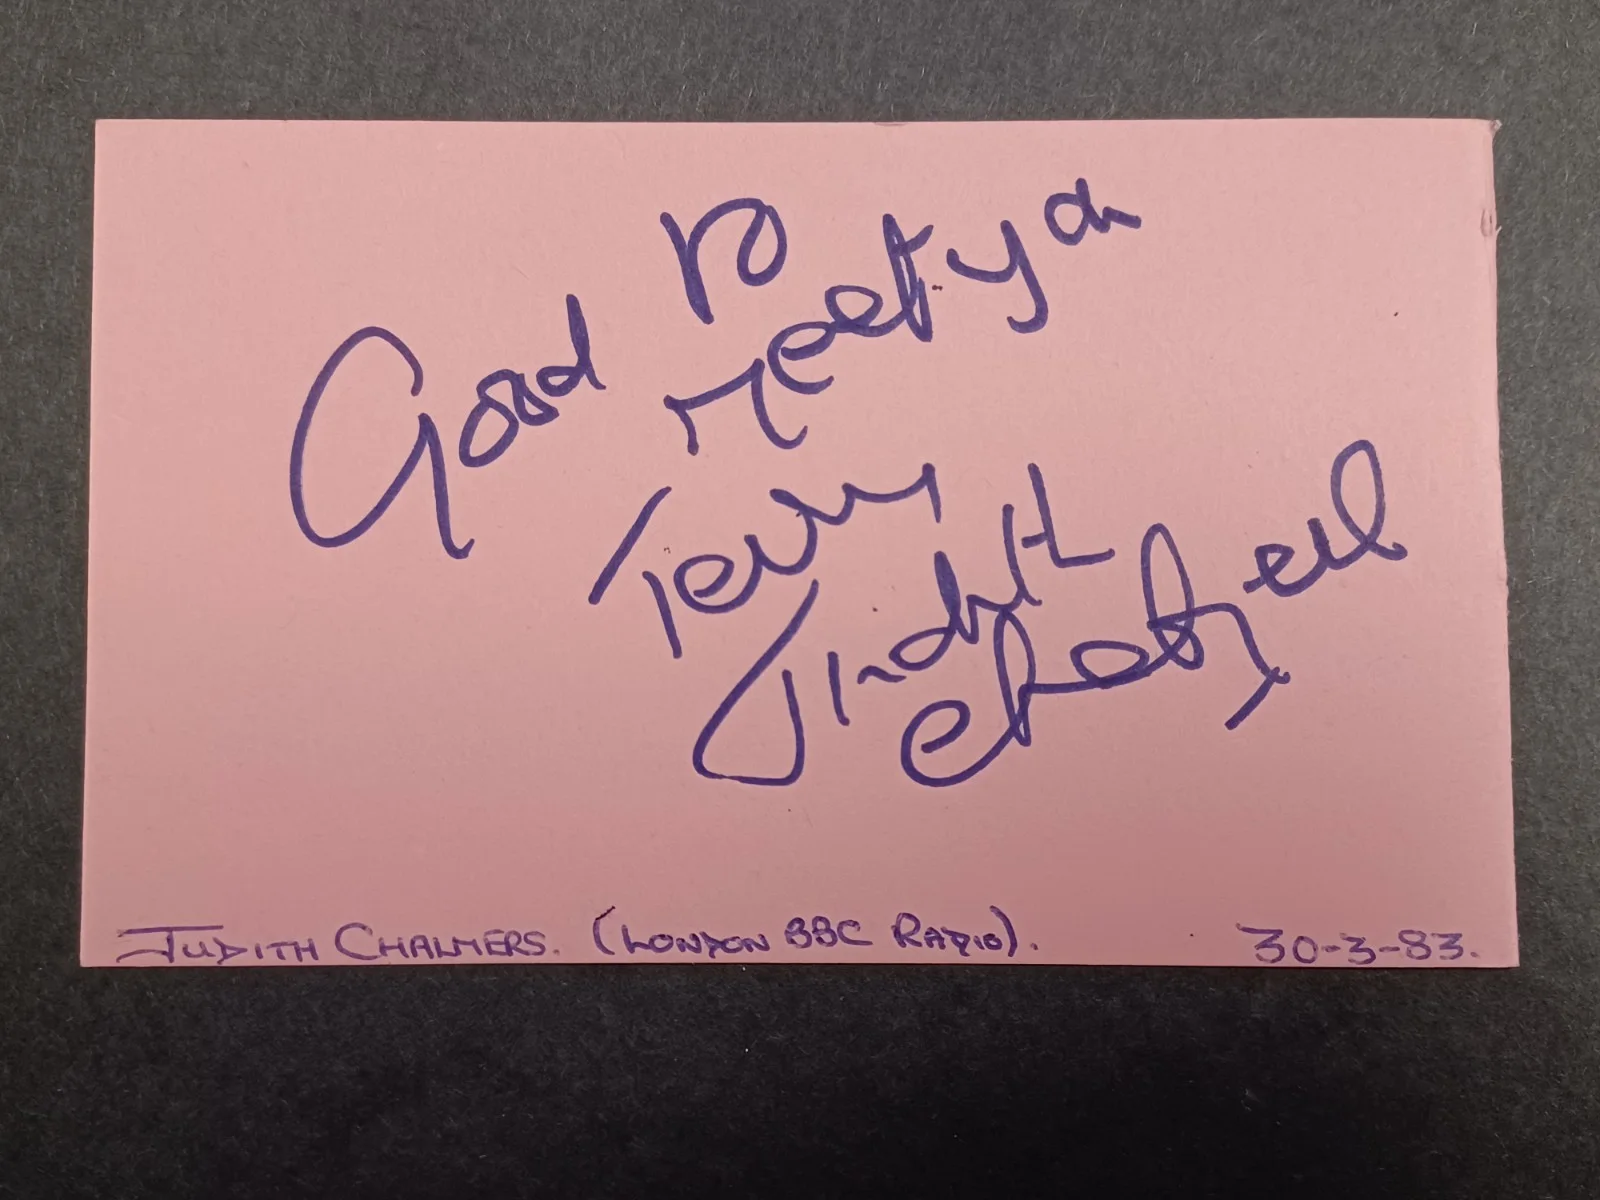 Good to
meet you
Terry
Judith
Chalmers
JUDITH CHALMERS. (LONDON BBC RADIO). 30-3-83.